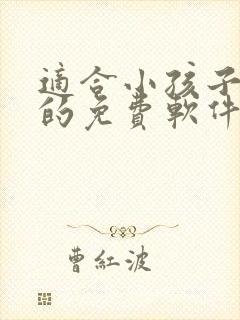 適合小孩子
的免費軟件
曹紅波